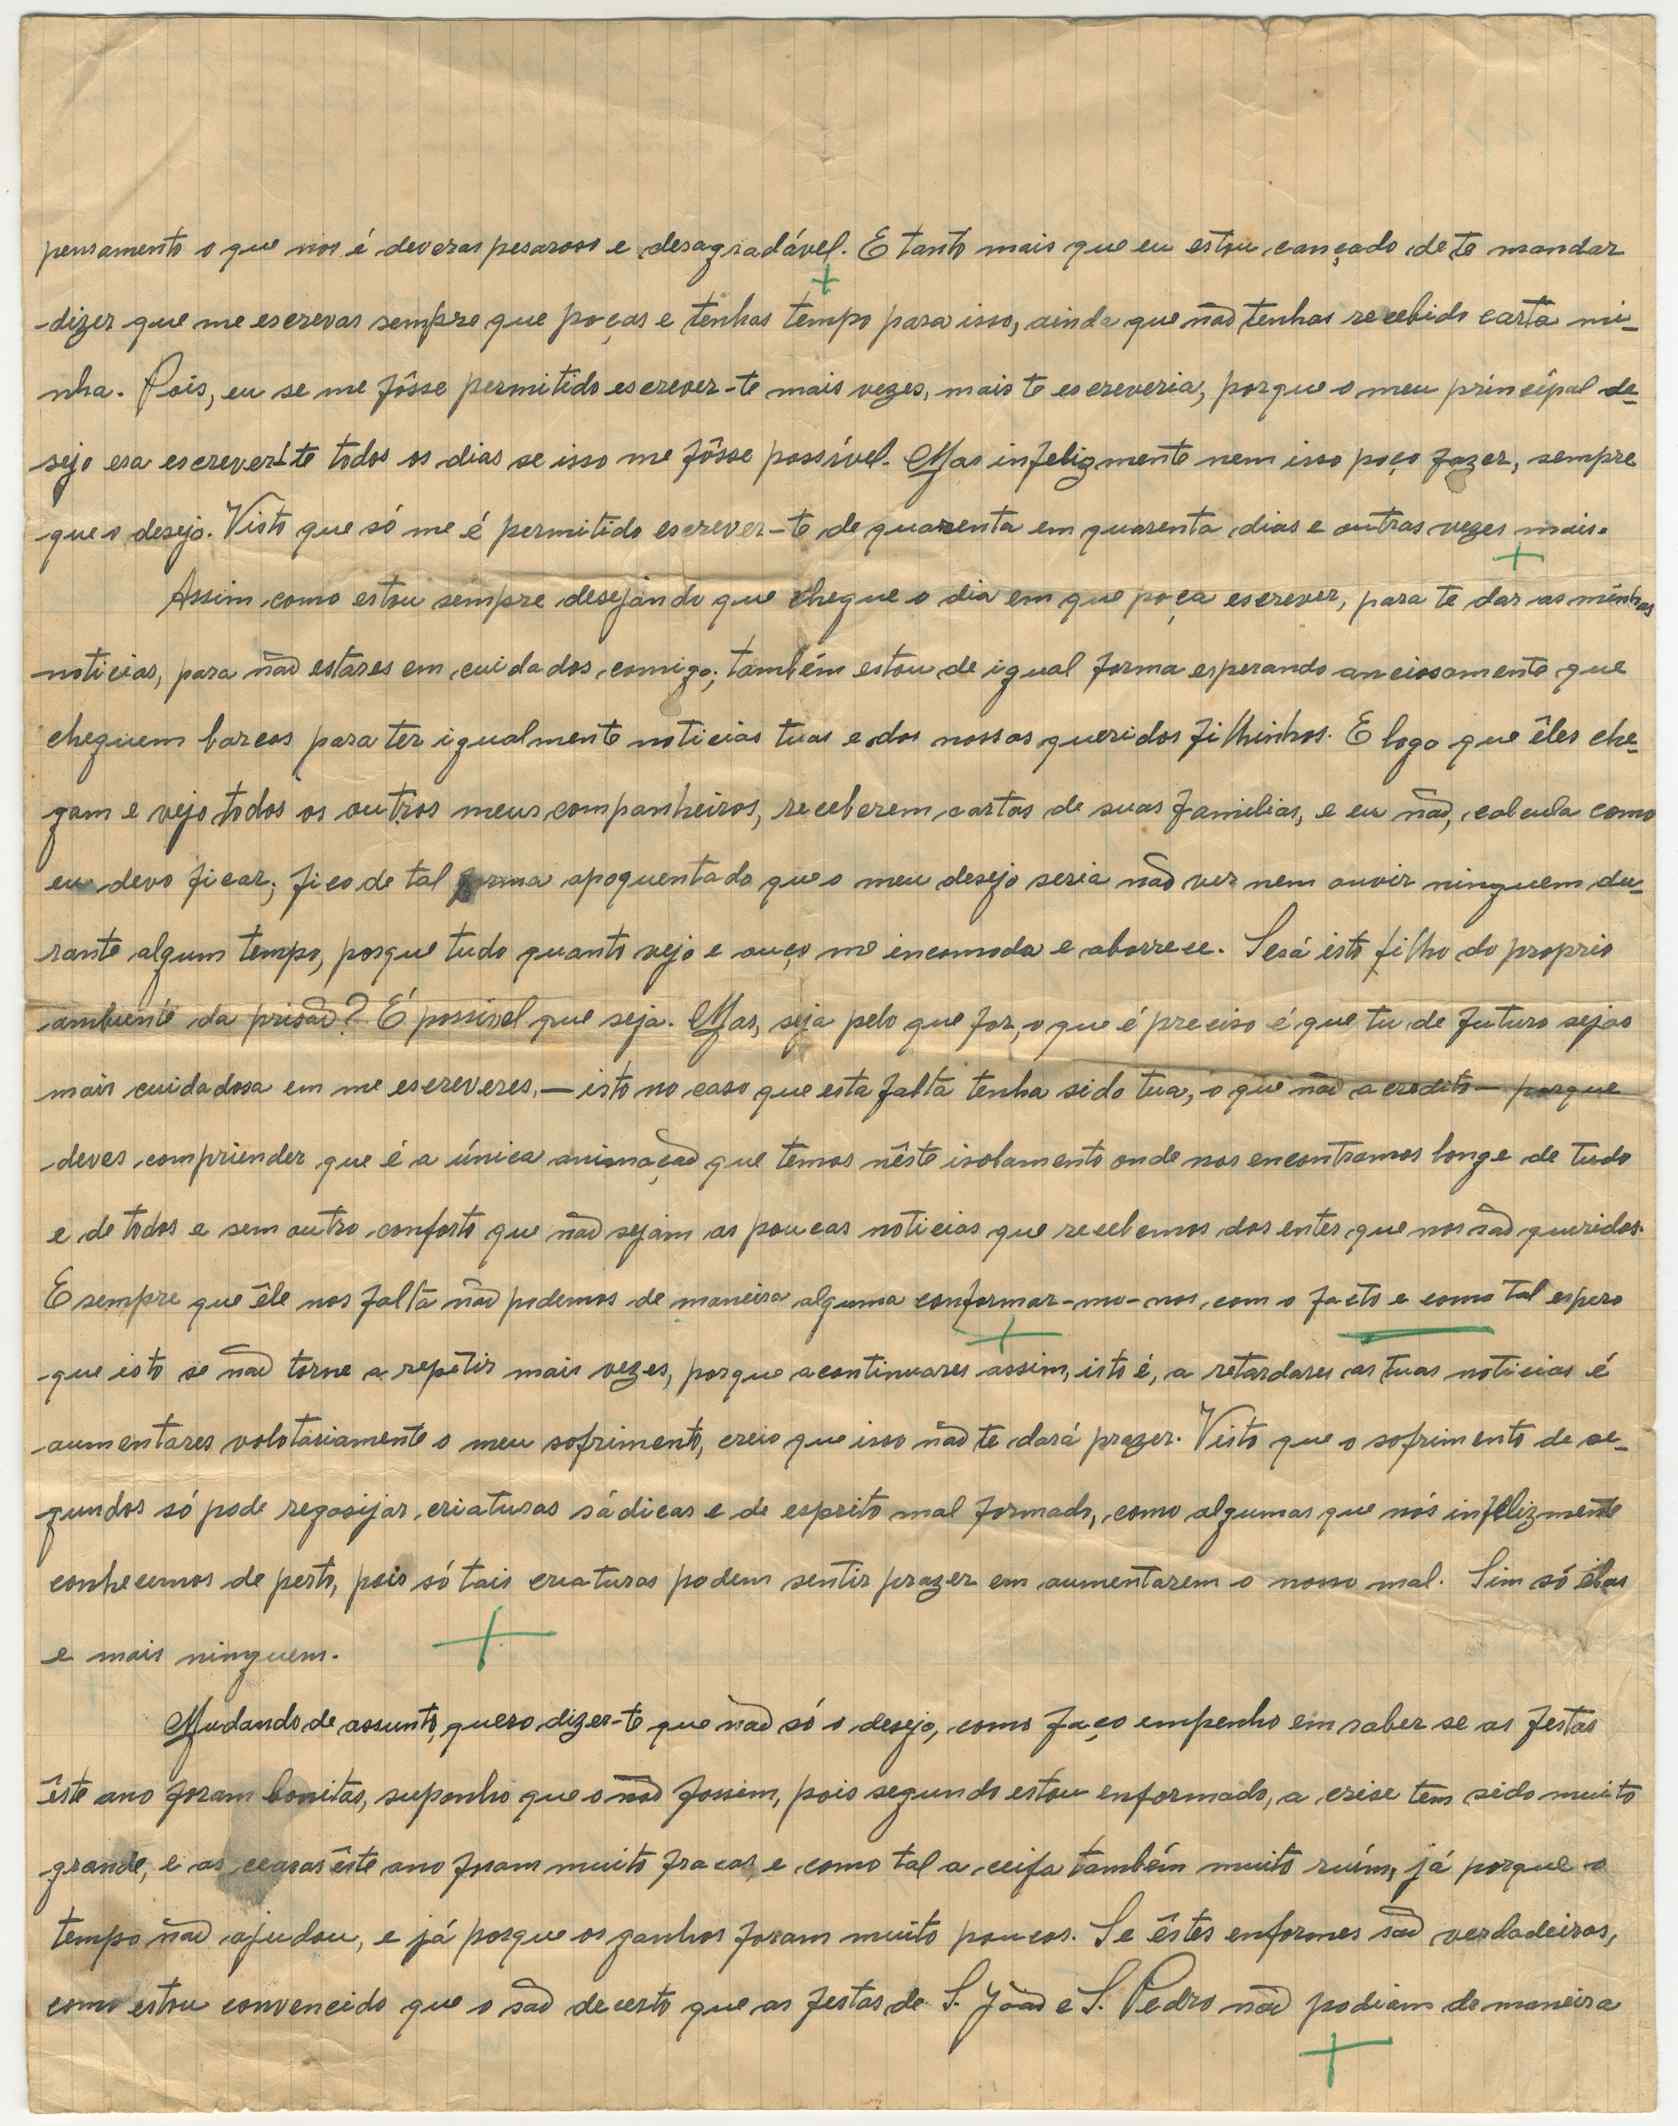 pensamento o que nos é deveras pesaroso e desagradável. E tanto mais que eu estou cançado de te mandar
dizer que me escrevas sempre que poças e tenhas tempo para isso, ainda que não tenhas recebido carta mi-
nha. Pois, eu se me fôsse permitido escrever-te mais vezes, mais te escreveria, porque o meu principal de-
sejo era escrever-te todos os dias se isso me fôsse possível. Mas infelizmente nem isso poço fazer, sempre
que o desejo. Visto que só me é permitido escrever-te de quarenta em quarenta dias e outras vezes mais.
Assim como estou sempre desejando que chegue o dia em que poça escrever, para te dar as minhas
noticias, para não estares em cuidados comigo; também estou de igual forma esperando anciosamente que
cheguem barcos para ter igualmente noticias tuas e dos nossos queridos filhinhos. E logo que êles che-
gam e vejo todos os outros meus companheiros, receberem cartas de suas familias, e eu não, calcula como
eu devo ficar; fico de tal forma apoquentado que o meu desejo seria não ver nem ouvir ninguem du-
rante algum tempo, porque tudo quanto vejo e ouço me incomoda e aborrece. Será isto filho do proprio
ambiente da prisão? É possivel que seja. Mas, seja pelo que for, o que é preciso é que tu de futuro sejas
mais cuidadosa em me escreveres, — isto no caso que esta falta tenha sido tua, o que não acredito — porque
deves compriender que é a única animação que temos nêste isolamento onde nos encontramos longe de tudo
e de todos e sem outro conforto que não sejam as poucas noticias que recebemos dos entes que nos são queridos.
E sempre que êle nos falta não podemos de maneira alguma conformar-mo-nos com o facto e como tal espero
que isto se não torne a repetir mais vezes, porque a continuares assim, isto é, a retardares as tuas noticias é
aumentares volotariamente o meu sofrimento, creio que isso não te dará prazer. Visto que o sofrimento de se-
gundos só pode regosijar criaturas sádicas e de esprito mal formado, como algumas que nós infelizmente
conhecemos de perto, pois só tais criaturas podem sentir prazer em aumentarem o nosso mal. Sim só elas
e mais ninguem.
Mudando de assunto, quero dizer-te que não só o desejo, como faço empenho em saber se as festas
êste ano foram bonitas, suponho que o não fossem, pois segundo estou enformado, a crise tem sido muito
grande, e as cearas êste ano foram muito fracas e como tal a ceifa também muito ruím, já porque o
tempo não ajudou, e já porque os ganhos foram muito poucos. Se êstes enformes são verdadeiros,
como estou convencido que o são decerto que as festas de S. João e S. Pedro não podiam de maneira